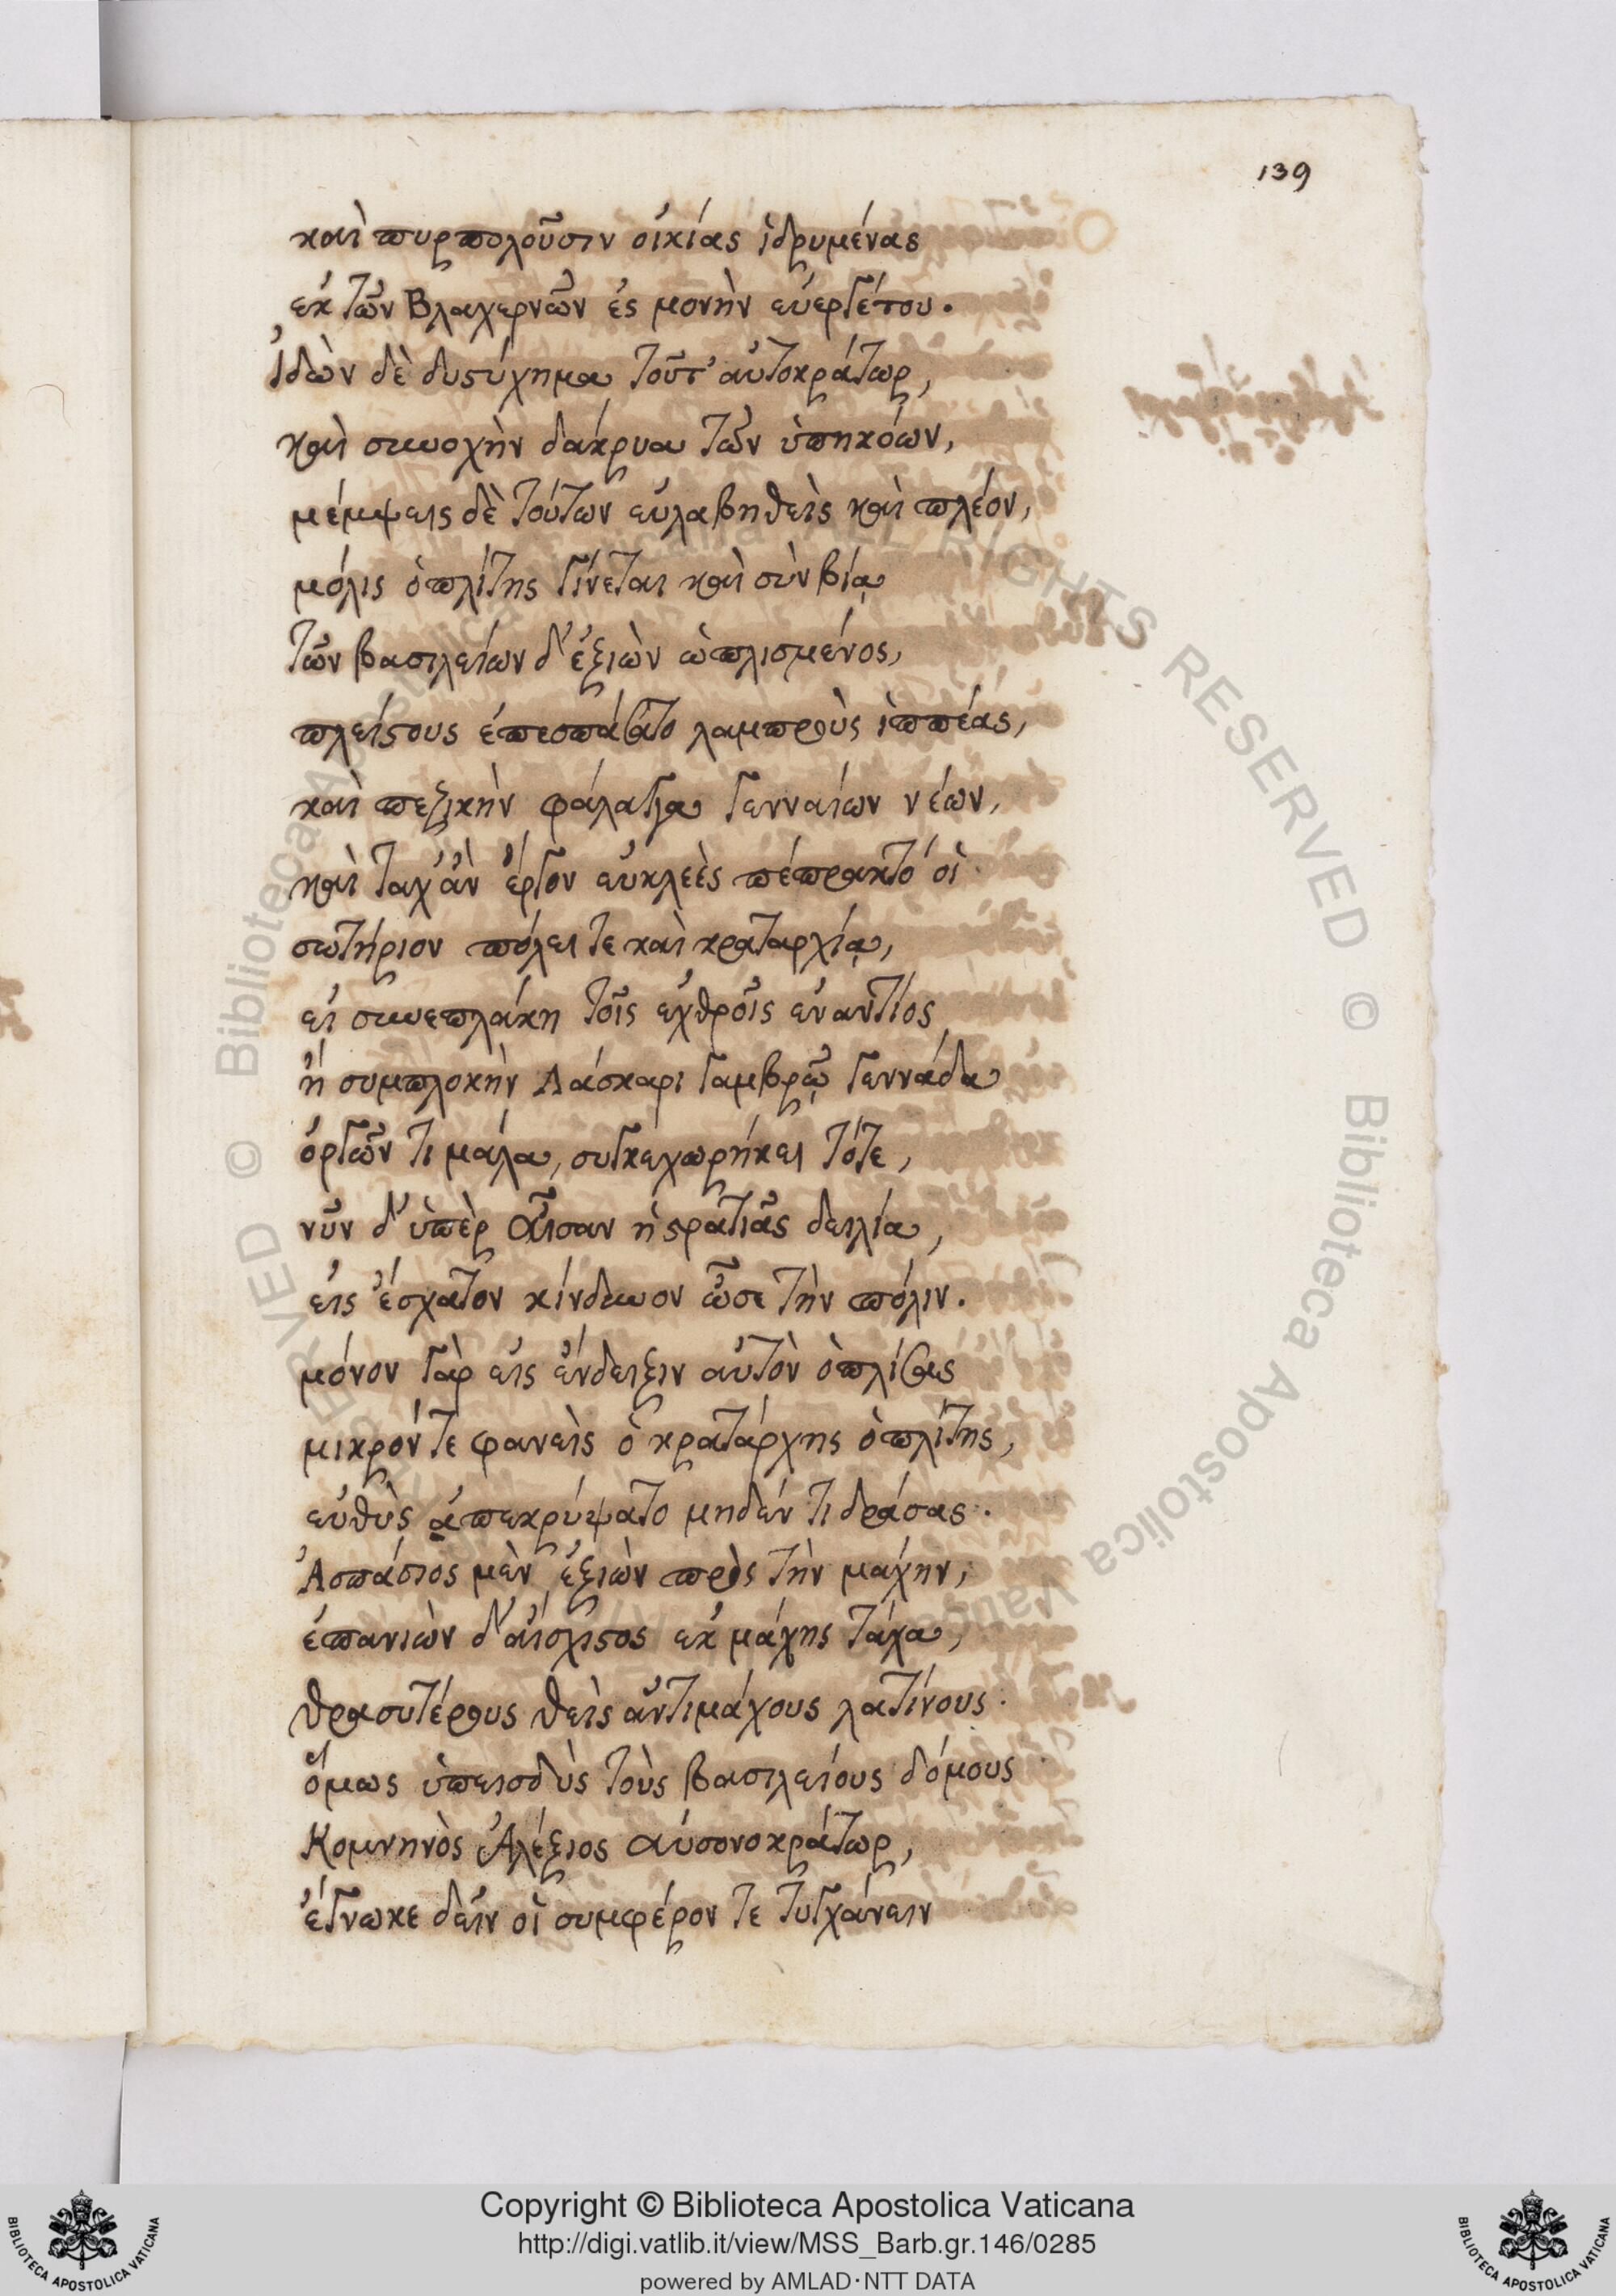 139
καὶ πυρπολοῦσιν οἰκίας ἱδρυμένας
ἐκ τῶν Βλαχερνῶν ἐς μονὴν εὐεργέτου.
Ἰδὼν δὲ δυστύχημα τοῦτ' αὐτοκράτωρ,
καὶ συνοχὴν δάκρυα τῶν ὑπηκόων,
μέμψεις δὲ τούτων εὐλαβηθεὶς καὶ πλέον,
μόλις ὁπλίτης γίνεται καὶ σὺν βίᾳ
τῶν βασιλείων δ' ἐξιὼν ὡπλισμένος,
πλείστους ἐπεσπάσατο λαμπροὺς ἱππέας,
καὶ πεζικὴν φάλαγγα γενναίων νέων,
καὶ ταχ' ἂν ἔργον εὐκλεὲς πέπρακτό οἱ
σωτήριον πόλει τε καὶ κραταρχίᾳ,
εἰ συνεπλάκη τοῖς ἐχθροῖς ἐναντίος
ἢ συμπλοκὴν Λάσκαρι γαμβρῷ γεννάδα
ὀργῶν τι μάλα, συγκεχωρήκει τότε,
νῦν δ' ὑπὲρ αἶσαν ἡ στρατιᾶς δειλία,
εἰς ἔσχατον κίνδυνον ὦσε τὴν πόλιν.
μόνον γὰρ εἰς ἔνδειξιν αὐτὸν ὁπλίσας
μικρόν τε φανεὶς ὁ κρατάρχης ὁπλίτης,
εὐθὺς ἀπεκρύψατο μηδέν τι δράσας.
Ἀσπάσιος μὲν ἐξιὼν πρὸς τὴν μάχην,
ἐπανιὼν δ' αἴσχιστος ἐκ μάχης τάχα,
θρασυτέρους θεὶς ἀντιμάχους λατίνους.
ὅμως ὑπεισδὺς τοὺς βασιλείους δόμους
Κομνηνὸς Ἀλέξιος αὐσονοκράτωρ,
ἔγνωκε δεῖν οἱ συμφέρον τε τυγχάνειν
© Biblioteca Apostolica Vaticana ALL RIGHTS RESERVED © Biblioteca Apostolica Vaticana ALL RIGHTS RESERVED
Copyright © Biblioteca Apostolica Vaticana
http://digi.vatlib.it/view/MSS_Barb.gr.146/0285
powered by AMLAD·NTT DATA
BIBLIOTECA APOSTOLICA VATICANA
BIBLIOTECA APOSTOLICA VATICANA